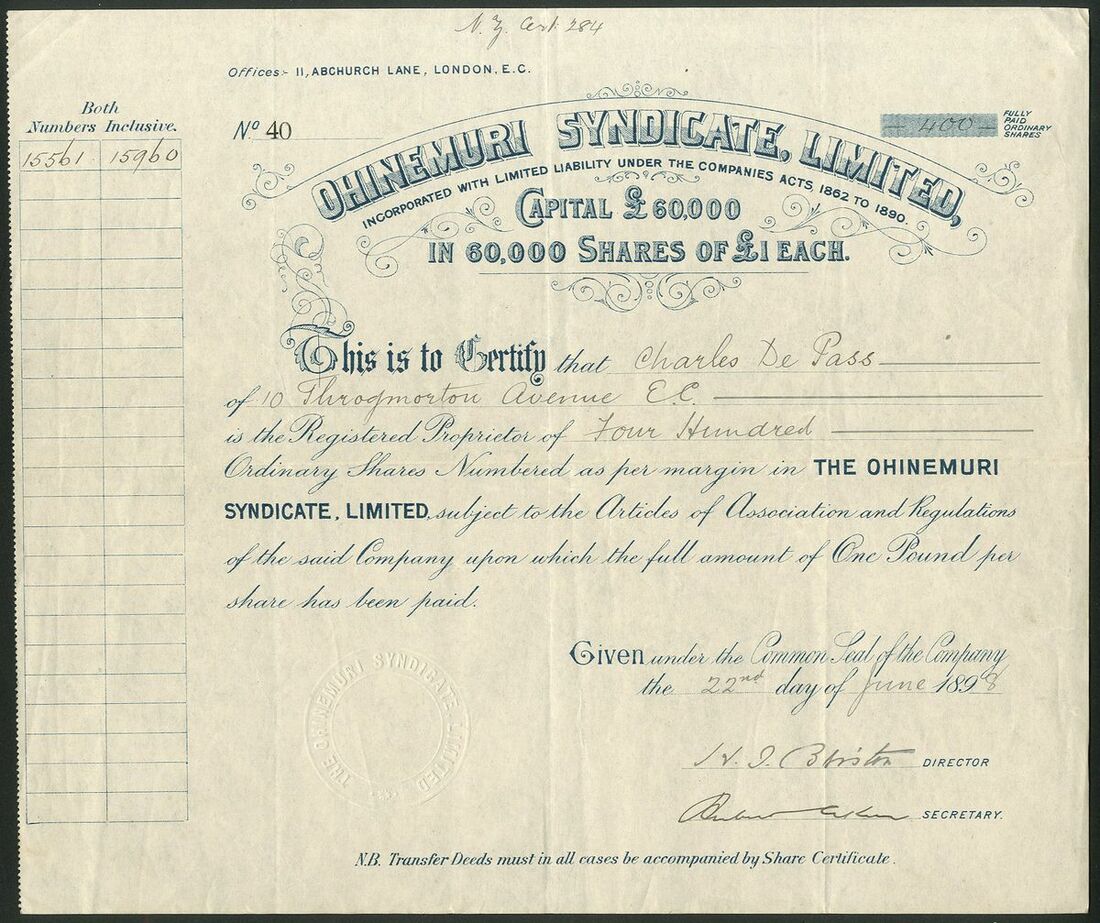 N.Z. Cert 284
Offices:- 11, ABCHURCH LANE, LONDON, E.C.
Both
Numbers Inclusive.
15561 15960
No 40
400
FULLY
PAID
ORDINARY
SHARES
OHINEMURI SYNDICATE, LIMITED,
INCORPORATED WITH LIMITED LIABILITY UNDER THE COMPANIES ACTS, 1862 TO 1890.
CAPITAL £60.000
IN 60,000 SHARES OF £1 EACH.
This is to Certify that Charles De Pass
of 10 Throgmorton Avenue E.C.
is the Registered Proprietor of Four Hundred
Ordinary Shares Numbered as per margin in THE OHINEMURI
SYNDICATE, LIMITED, subject to the Articles of Association and Regulations
of the said Company upon which the full amount of One Pound per
share has been paid.
Given under the Common Seal of the Company
the 22nd day of June 1898
THE OHINEMURI SYNDICATE, LIMITED
DIRECTOR
SECRETARY.
N.B. Transfer Deeds must in all cases be accompanied by Share Certificate.